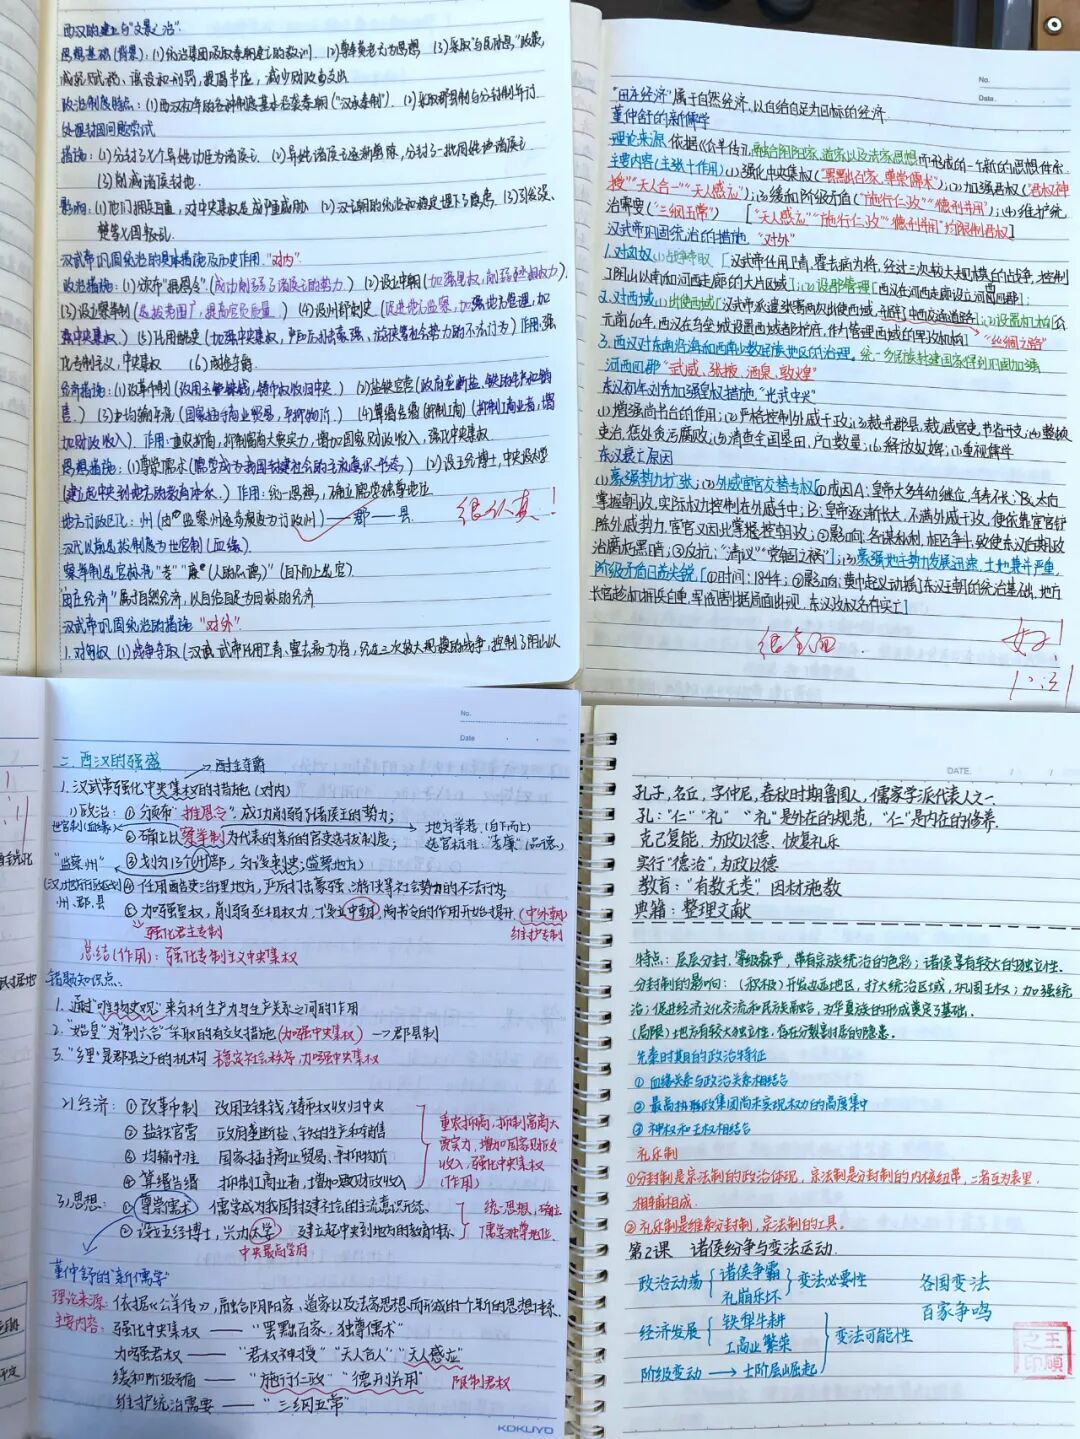 西汉的建立与"文景之治"
思想基础(背景):(1)统治集团吸取秦朝速亡的教训 (2)尊奉黄老无为思想 (3)采取"与民休息"政策,
减轻赋税、谨设和刑罚,提倡节俭,减少财政支出
政治制度特点:(1)西汉初年的各种制度基本沿袭秦朝("汉承秦制") (2)采取郡县制与分封制并行
处理封国问题尝试
措施:(1)分封了七个异姓功臣为诸侯王 (2)异姓诸侯王逐渐剪除,分封了一批同姓诸侯王
(3)削减诸侯封地
影响:(1)他们拥兵自重,对中央集权造成严重威胁 (2)汉王朝的统治和稳定埋下了隐患 (3)引发吴、
楚等七国叛乱
汉武帝巩固统治的具体措施及历史作用 "对内"
政治措施:(1)颁布"推恩令"(成功削弱了诸侯王的势力) (2)设中朝(加强皇权,削弱丞相权力)
(3)设立察举制(选拔范围广,提高官员质量) (4)设州部刺史(促进地方监察,加强地方管理,加
强中央集权) (5)任用酷吏(加强中央集权,严厉打击豪强、游侠等社会势力的不法行为) 作用:强
化专制主义,中央集权 (6)酎金夺爵
经济措施:(1)改革币制(改用五铢钱,铸币权收归中央) (2)盐铁官营(政府垄断盐、铁的生产和销
售) (3)均输平准(国家插手商业贸易,平抑物价) (4)算缗告缗(抑制工商)(抑制工商业者,增
加财政收入) 作用:重农抑商,抑制富商大贾实力,增加国家财政收入,强化中央集权
思想措施:(1)尊崇儒术(儒学成为我国封建社会的主流意识形态) (2)设五经博士,中央设太学
(建立起中央到地方的教育体系) 作用:统一思想,确立儒学独尊地位
地方行政区化:州(由监察州逐步演变为行政州)——郡——县 很认真!
汉代以前选拔制度为世官制(血缘)
察举制选官标准"孝""廉"(人的品德)(自下而上选官)
"田庄经济"属于自然经济,以自给自足为目标的经济
汉武帝巩固统治的措施 "对外"
1.对匈奴 (1)战争夺取(汉武帝任用卫青、霍去病为将,经过三次较大规模的战争,控制了阴山以
No.
Date
"田庄经济"属于自然经济,以自给自足为目标的经济
董仲舒的新儒学
理论来源:依据《公羊传》,融合阴阳家、道家以及法家思想而形成的一个新的思想体系
主要内容(主张+作用):(1)强化中央集权("罢黜百家,尊崇儒术");(2)加强君权("君权神
授""天人合一""天人感应");(3)缓和阶级矛盾("施行仁政""德刑并用");(4)维护统
治需要("三纲五常") ["天人感应""施行仁政""德刑并用"均限制君权]
汉武帝巩固统治的措施 "对外"
1.对匈奴 (1)战争夺取 [汉武帝任用卫青、霍去病为将,经过三次较大规模的战争,控制
了阴山以南和河西走廊的大片区域];(2)设郡管理[西汉在河西走廊设河西四郡];
2.对西域:(1)出使西域[汉武帝派遣张骞两次出使西域,开辟了中西交通道路];(2)设置机构[公
元前60年,西汉在乌垒城设置西域都护府,作为管理西域的军政机构] "丝绸之路"
3.西汉对东南沿海和西南少数民族地区的治理,统一多民族封建国家得到巩固加强
河西四郡 "武威、张掖、酒泉、敦煌"
东汉初年刘秀加强皇权措施 "光武中兴"
(1)增强尚书台的作用;(2)严格控制外戚干政;(3)裁并郡县,裁减官吏,节省开支;(4)整顿
吏治,惩处贪污腐败;(5)清查全国垦田、户口数量;(6)释放奴婢;(7)重视儒学
东汉衰亡原因
(1)豪强势力扩张;(2)外戚宦官交替专权[①成因A:皇帝大多年幼继位,年寿不长;B:太后
掌握朝政,实际权力控制在外戚手中;B:皇帝逐渐长大,不满外戚干政,便依靠宦官铲
除外戚势力,宦官又因此掌握控朝政;②影响:各谋私利,相互争斗,致使东汉后期政
治腐朽黑暗;③反抗:"清议""党锢之祸"];(3)豪强地主势力发展迅速,土地兼并严重,
阶级矛盾日益尖锐[①时间:184年;②影响:黄巾起义动摇了东汉王朝的统治基础,地方
长官趁机拥兵自重,军阀割据局面出现,东汉政权名存实亡]
很全面. 好!
No.
Date
二.西汉的强盛
酎金夺爵
1.汉武帝强化中央集权的措施(对内)
1)政治:①颁布"推恩令",成功削弱了诸侯王的势力;
世官制(血缘)
②确立以察举制为代表的新的官吏选拔制度; 地方举荐(自下而上)
选官标准:"孝廉"(品德)
"监察州" ③划为13个州部,分设刺史;(监察地方)
(汉)地方行政区划 ④任用酷吏治理地方,严厉打击豪强、游侠等社会势力的不法行为;
州、郡、县
⑤加强皇权,削弱丞相权力,设立中朝,尚书令的作用开始提升.(中外朝)
强化君主专制 维护专制
总结(作用):强化专制主义中央集权
错题知识点:
1.通过"唯物史观"来分析生产力与生产关系之间的作用
2."始皇"为"制六合"采取的有效措施(加强中央集权)→郡县制
3."乡里"是郡县之下的机构 稳定社会秩序,加强中央集权
2)经济:①改革币制 改用五铢钱,铸币权收归中央
②盐铁官营 政府垄断盐、铁的生产和销售
③均输平准 国家插手商业贸易、平抑物价
④算缗告缗 抑制工商业者,增加政府财政收入
重农抑商,抑制富商大
贾实力,增加国家财政
收入,强化中央集权
(作用)
3)思想:①尊崇儒术 儒学成为我国封建社会的主流意识形态.
②设立五经博士,兴办太学 建立起中央到地方的教育体系
中央最高学府
统一思想,确立
儒学独尊地位.
董仲舒的"新儒学"
理论来源:依据《公羊传》,融合阴阳家、道家以及法家思想而形成的一个新的思想体系.
主要内容:强化中央集权——"罢黜百家,独尊儒术"
加强君权——"君权神授""天人合一""天人感应"
缓和阶级矛盾——"施行仁政""德刑并用" 限制君权
维护统治需要——"三纲五常"
KOKUYO
DATE. / /
孔子,名丘,字仲尼,春秋时期鲁国人,儒家学派代表人之一.
孔:"仁""礼" "礼"是外在的规范,"仁"是内在的修养.
克己复礼,为政以德 恢复礼乐
实行"德治",为政以德
教育:"有教无类" 因材施教
典籍:整理文献
特点:层层分封,等级森严,带有宗族统治的色彩;诸侯享有较大的独立性.
分封制的影响:(积极)开发边远地区,扩大统治区域,巩固王权;加强统
治;促进经济文化交流和民族融合,为华夏族的形成奠定了基础.
(局限)地方有较大独立性,存在分裂割据的隐患.
先秦时期的政治特征
①血缘关系与政治关系相结合
②最高执政集团尚未实现权力的高度集中
③神权和王权相结合
礼乐制
①分封制是宗法制的政治体现,宗法制是分封制的内核纽带,二者互为表里.
相辅相成.
②礼乐制是维系分封制,宗法制的工具。
第2课 诸侯纷争与变法运动
政治动荡 诸侯争霸 礼崩乐坏 变法必要性 各国变法
百家争鸣
经济发展 铁犁牛耕 工商业繁荣 变法可能性
阶级变动→士阶层崛起